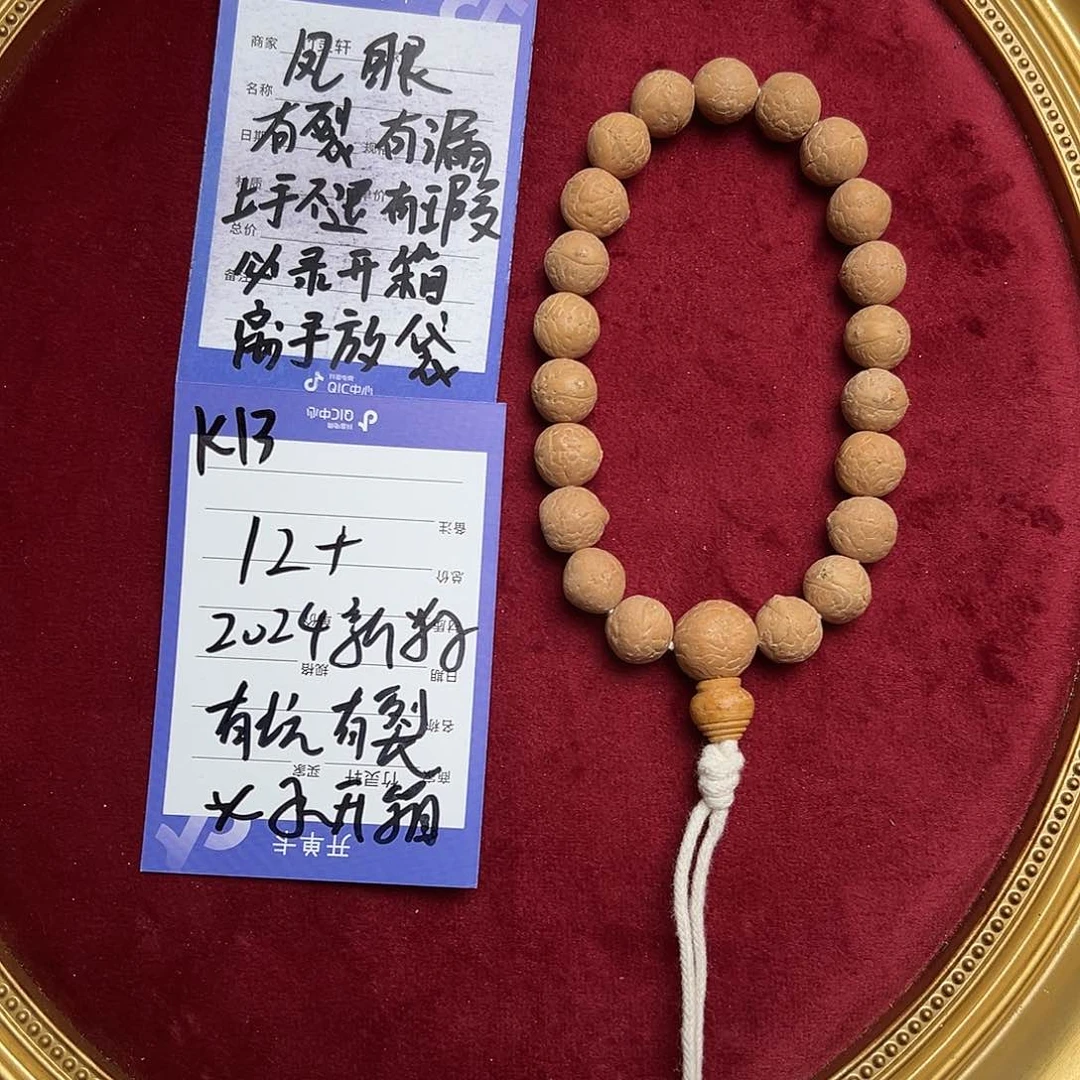 商家 竹灵轩
凤眼
名称
有裂有漏
日期 规格
材质 单价
上手不退有瑕
总价
备注
必录开箱
离手放袋
抖音电商
QIC中心
抖音电商
QIC中心
K13
备注
12+
总价
2024新籽
材质
日期 规格
有坑有裂
名称
商家 竹灵轩 买家
必录开箱
开单卡